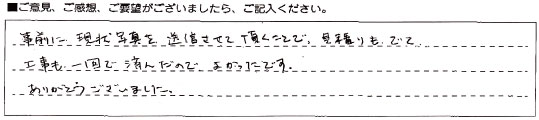 ■ご意見、ご感想、ご要望がございましたら、ご記入ください。
事前に 現状写真を 送信させて頂くことで、見積りも でて
工事も 一回で 済んだので よかったです。
ありがとうございました。